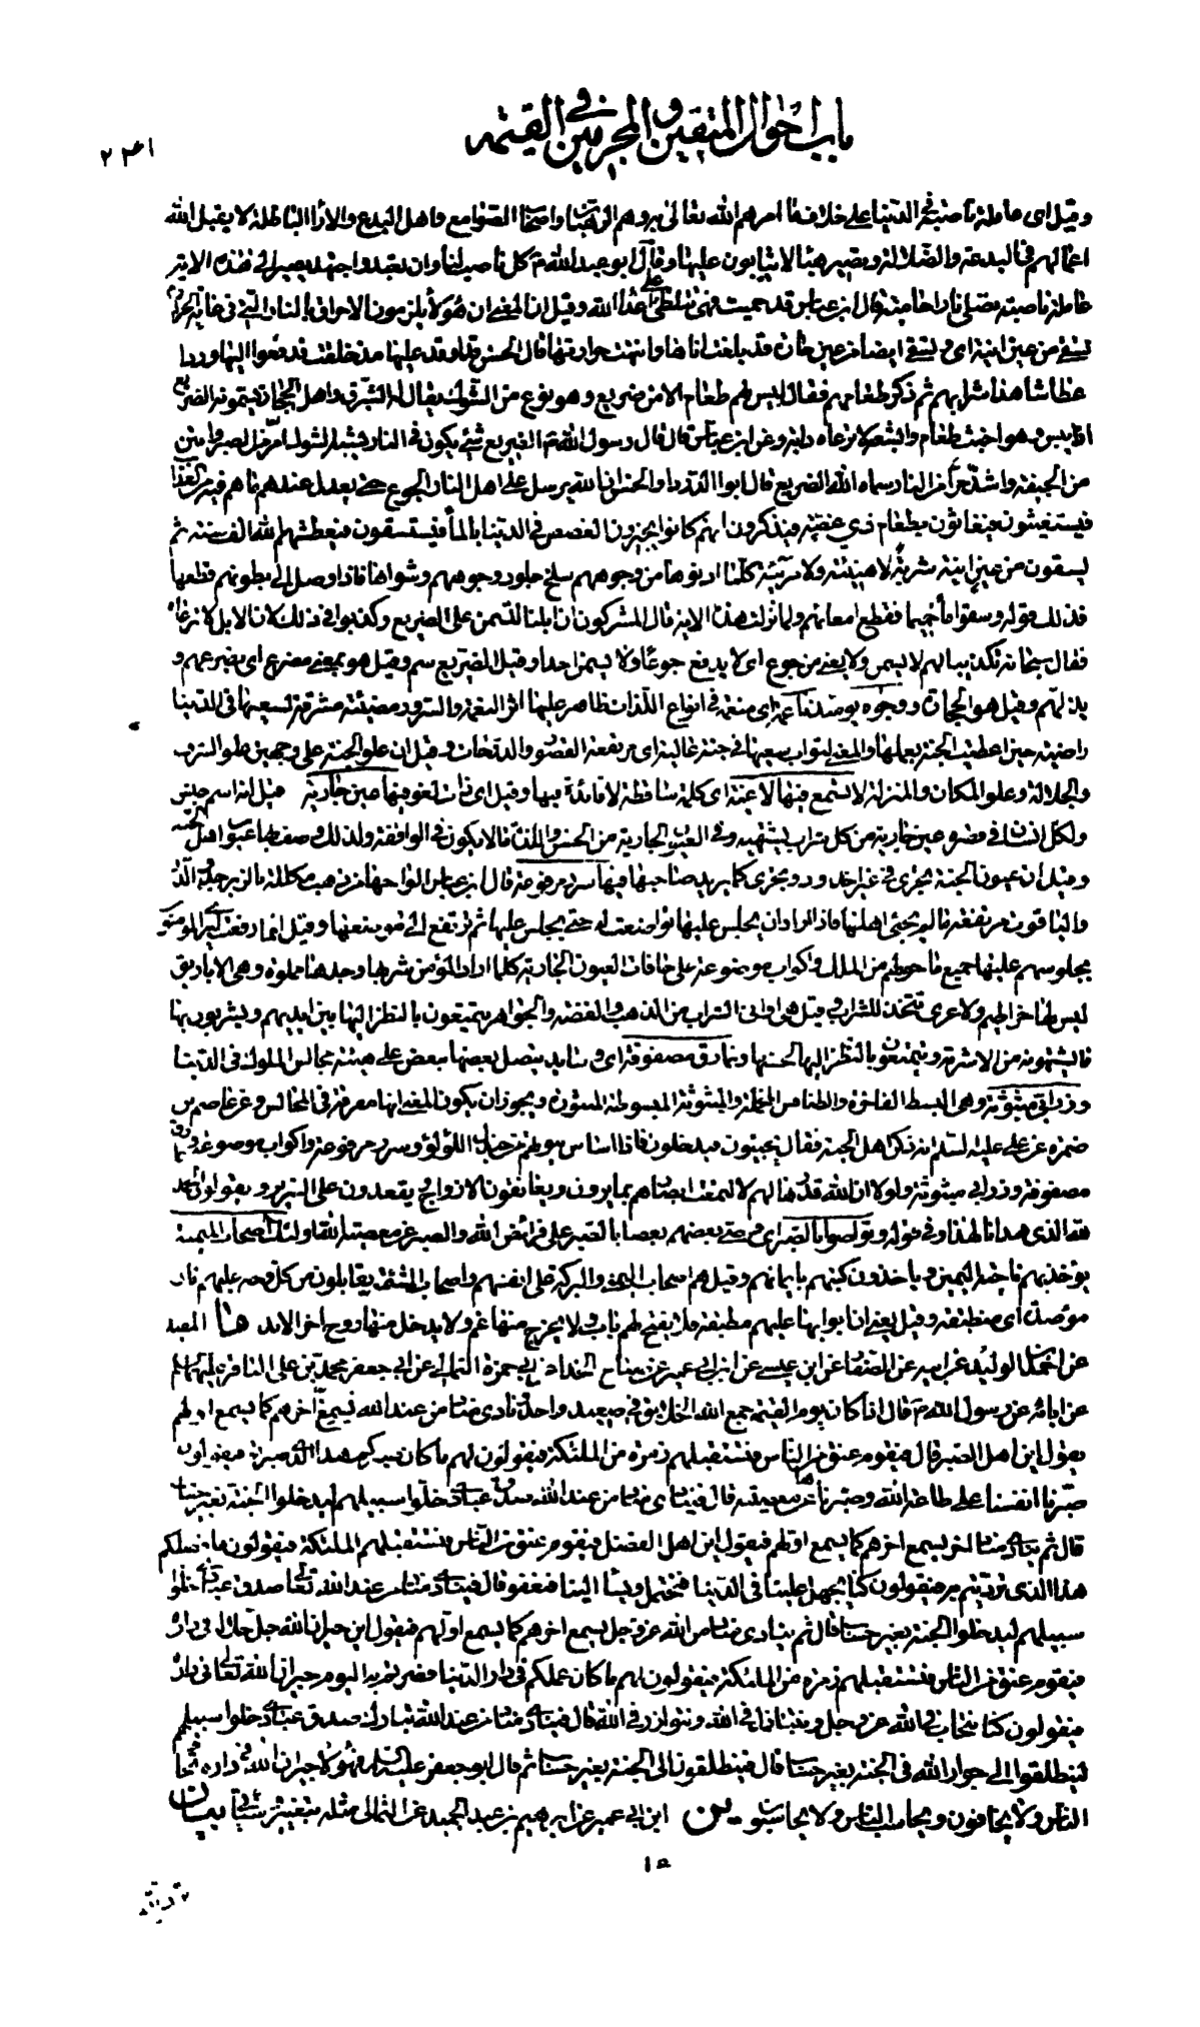 باب احوال المتقين والمجرمين في القيمة
٢٣١
وقيل اى عاملة ناصبة في الدنيا على خلاف ما امرهم الله تعالى به وهم الرهبان واصحاب الصوامع واهل البدع والآراء الباطلة لا يقبل الله
اعمالهم في البدعة والضلالة وتصير هباء لا يثابون عليها وقال ابو عبد الله ع كل ناصب لنا وان تعبد واجتهد يصير الى هذه الاية
عاملة ناصبة تصلى نارا حامية قال ابن عباس قد حميت فهي تتلظى على اعداء الله وقيل ان المعنى ان هؤلاء يلزمون الاحراق بالنار التي في غاية الحرارة
تسقى من عين انية اى وتسقى ايضا من عين حارة قد بلغت اناها وانتهت حرارتها قال الحسن قد اوقد عليها مذ خلقت فدفعوا اليها وردا
عطاشا هذا شرابهم ثم ذكر طعامهم فقال ليس لهم طعام الا من ضريع وهو نوع من الشوك يقال له الشبرق واهل الحجاز يسمونه الضريع
اذا يبس وهو اخبث طعام وابشعه لا ترعاه دابة وعن ابن عباس قال قال رسول الله ص الضريع شيء يكون في النار يشبه الشوك امر من الصبر وانتن
من الجيفة واشد حرا من النار سماه الله الضريع قال ابو الدرداء والحسن ان الله يرسل على اهل النار الجوع حتى يعدل عندهم ما هم فيه من العذاب
فيستغيثون فيغاثون بطعام ذي غصة فيذكرون انهم كانوا يجيزون الغصص في الدنيا بالماء فيستسقون فيعطشهم الله الف سنة ثم
يسقون من عين انية شربة لا هنيئة ولا مريئة كلما ادنوها من وجوههم سلخ جلود وجوههم وشواها فاذا وصل الى بطونهم قطعها
فذلك قوله وسقوا ماء حميما فقطع امعاءهم ولما نزلت هذه الاية قال المشركون ان ابلنا لتسمن على الضريع وكذبوا في ذلك لان الابل لا ترعاه
فقال سبحانه تكذيبا لهم لا يسمن ولا يغني من جوع اى لا يدفع جوعا ولا يسمن احدا وقيل الضريع سم وقيل هو بمعنى مضرع اى يضرعهم و
يذلهم وقيل هو الحجارة ووجوه يومئذ ناعمة اى منعمة في انواع اللذات ظاهر عليها اثر النعمة والسرور مضيئة مشرقة لسعيها في الدنيا
راضية حين اعطيت الجنة بعملها والمعنى لثواب سعيها في جنة عالية اى مرتفعة القصور والدرجات وقيل ان علو الجنة على وجهين علو الشرف
والجلالة وعلو المكان والمنزلة لا تسمع فيها لاغية اى كلمة ساقطة لا فائدة فيها وقيل اى ذات لغو فيها عين جارية قيل انه اسم جنس
ولكل انسان في قصره عين جارية من كل شراب يشتهيه وفي العيون الجارية من الحسن واللذة ما لا يكون في الواقفة ولذلك وصف بها عيون اهل الجنة
وقيل ان عيون الجنة تجري في غير اخدود وتجري كما يريد صاحبها فيها سرر مرفوعة قال ابن عباس الواحها من ذهب مكللة بالزبرجد والدر
والياقوت مرتفعة ما لم يجئ اهلها فاذا اراد ان يجلس عليها تواضعت له حتى يجلس عليها ثم ترتفع الى موضعها وقيل انما رفعت ليرى المؤمنون
بجلوسهم عليها جميع ما حولهم من الملك واكواب موضوعة على حافات العيون الجارية كلما اراد المؤمن شربها وجدها مملوة وهي الاباريق
ليس لها خراطيم ولا عرى تتخذ للشراب وقيل هي اوانى الشراب من الذهب والفضة والجواهر يتمتعون بالنظر اليها بين ايديهم ويشربون بها
ما يشتهونه من الاشربة ويتمتعون بالنظر اليها لحسنها ونمارق مصفوفة اى وسايد يتصل بعضها ببعض على هيئة مجالس الملوك في الدنيا
وزرابي مبثوثة وهي البسط الفاخرة والطنافس المخملة والمبثوثة المبسوطة المنشورة ويجوز ان يكون المعنى انها مفرقة في المجالس وعن عاصم بن
ضمرة عن علي عليه السلام انه ذكر اهل الجنة فقال يجيئون فيدخلون فاذا اساس بيوتهم من جندل اللؤلؤ وسرر مرفوعة واكواب موضوعة ونمارق
مصفوفة وزرابي مبثوثة ولولا ان الله قدرها لهم لالتمعت ابصارهم بما يرون ويعانقون الازواج ويقعدون على السرر ويقولون الحمد
لله الذى هدانا لهذا وفي قوله وتواصوا بالصبر اى وصى بعضهم بعضا بالصبر على فرائض الله والصبر عن معصية الله اولئك اصحاب الميمنة
يؤخذ بهم ناحية اليمين وياخذون كتبهم بايمانهم وقيل هم اصحاب اليمن والبركة على انفسهم واصحاب المشئمة يقابلون من كل وجه عليهم نار
موصدة اى مطبقة وقيل يعنى ان ابوابها عليهم مطبقة فلا يفتح لهم باب ولا يخرج منها غم ولا يدخل منها روح اخر الابد ما المفيد
عن احمد بن الوليد عن ابيه عن الصفار عن ابن عيسى عن ابن ابي عمير عن صباح الحذاء عن ابي حمزة الثمالى عن ابي جعفر محمد بن على الباقر عليهما السلم
عن ابائه عن رسول الله ص قال اذا كان يوم القيمة جمع الله الخلائق في صعيد واحد ونادى مناد من عند الله يسمع آخرهم كما يسمع اولهم
يقول اين اهل الصبر قال فيقوم عنق من الناس فتستقبلهم زمرة من الملئكة فيقولون لهم ما كان صبركم هذا الذى صبرتم فيقولون
صبرنا انفسنا على طاعة الله وصبرناها عن معصيته قال فينادى مناد من عند الله صدق عبادى خلوا سبيلهم ليدخلوا الجنة بغير حساب
قال ثم ينادى مناد اخر يسمع اخرهم كما يسمع اولهم فيقول اين اهل الفضل فيقوم عنق من الناس فتستقبلهم الملئكة فيقولون ما فضلكم
هذا الذى نوديتم به فيقولون كنا يجهل علينا في الدنيا فنحتمل ويساء الينا فنعفو قال فينادى مناد من عند الله تعالى صدق عبادى خلوا
سبيلهم ليدخلوا الجنة بغير حساب قال ثم ينادى مناد من الله عز وجل يسمع اخرهم كما يسمع اولهم فيقول اين جيران الله جل جلاله في داره
فيقوم عنق من الناس فتستقبلهم زمرة من الملئكة فيقولون لهم ما كان عملكم في دار الدنيا فصرتم به اليوم جيران الله تعالى في داره
فيقولون كنا نتحاب في الله عز وجل ونتباذل في الله ونتوازر في الله قال فينادى مناد من عند الله تبارك وتعالى صدق عبادى خلوا سبيلهم
لينطلقوا الى جوار الله في الجنة بغير حساب قال فينطلقون الى الجنة بغير حساب ثم قال ابو جعفر عليه السلم فهؤلاء جيران الله في داره يخاف
الناس ولا يخافون ويحاسب الناس ولا يحاسبون ين ابن ابي عمير عن ابرهيم بن عبد الحميد عن الثمالى مثله بتغيير ما بيان